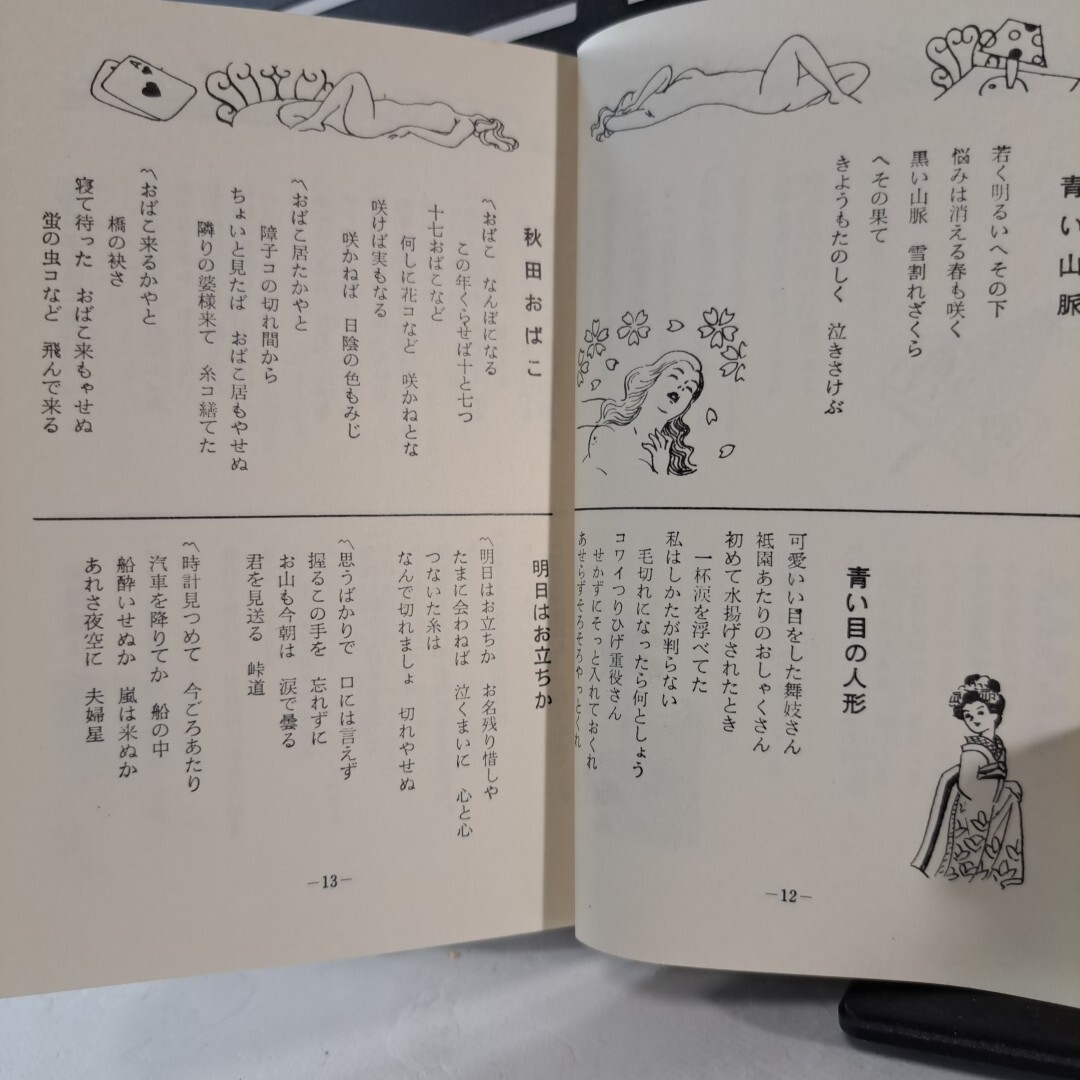 青い山脈
若く明るいへその下
悩みは消える春も咲く
黒い山脈 雪割れざくら
へその果て
きようもたのしく 泣きさけぶ
青い目の人形
可愛いい目をした舞妓さん
祗園あたりのおしゃくさん
初めて水揚げされたとき
一杯涙を浮べてた
私はしかたが判らない
毛切れになったら何としょう
コワイつりひげ重役さん
せかずにそっと入れておくれ
あせらずそろそろやっとくれ
—12—
秋田おばこ
〽おばこ なんぼになる
この年くらせば十と七つ
十七おばこなど
何しに花コなど 咲かねとな
咲けば実もなる
咲かねば 日陰の色もみじ
〽おばこ居たかやと
障子コの切れ間から
ちょいと見たば おばこ居もやせぬ
隣りの婆様来て 糸コ繕てた
〽おばこ来るかやと
橋の袂さ
寝て待った おばこ来もゃせぬ
蛍の虫コなど 飛んで来る
明日はお立ちか
〽明日はお立ちか お名残り惜しや
たまに会わねば 泣くまいに 心と心
つないた糸は
なんで切れましょ 切れやせぬ
〽思うばかりで 口には言えず
握るこの手を 忘れずに
お山も今朝は 涙で曇る
君を見送る 峠道
〽時計見つめて 今ごろあたり
汽車を降りてか 船の中
船酔いせぬか 嵐は来ぬか
あれさ夜空に 夫婦星
—13—